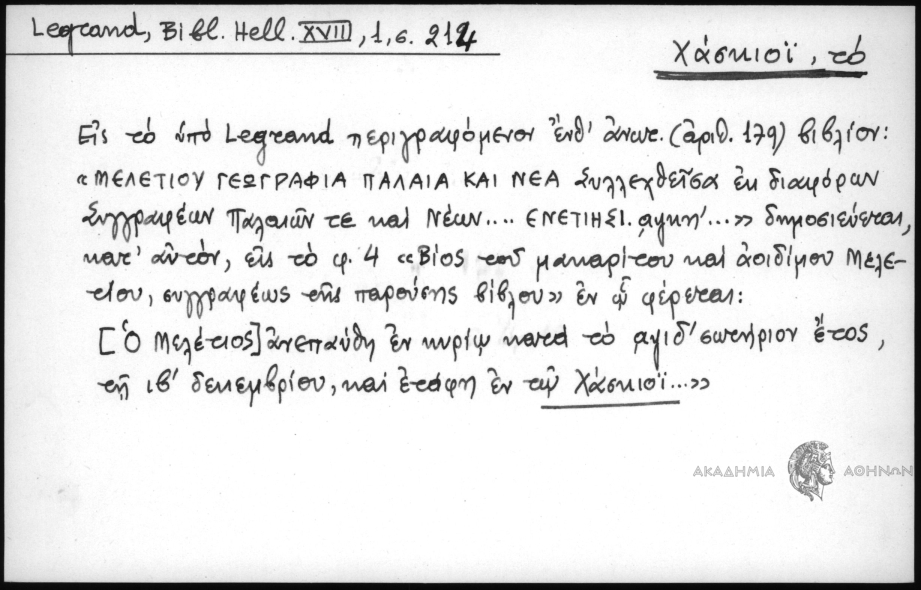 Legrand, Bibl. Hell. XVIII, 1, σ. 214
Χάσκιοϊ, τό
Εἰς τό ὑπό Legrand περιγραφόμενον ἐνθ' ἀνωτ. (ἀριθ. 179) βιβλίον:
«ΜΕΛΕΤΙΟΥ ΓΕΩΓΡΑΦΙΑ ΠΑΛΑΙΑ ΚΑΙ ΝΕΑ Συλλεχθεῖσα ἐκ διαφόρων
Συγγραφέων Παλαιῶν τε καί Νέων.... ΕΝΕΤΙΗΣΙ. ͵αψκη'...» δημοσιεύεται,
κατ' αὐτόν, εἰς τό φ. 4 «Βίος τοῦ μακαρίτου καί ἀοιδίμου Μελε-
τίου, συγγραφέως τῆς παρούσης βίβλου» ἐν ᾧ φέρεται:
[Ὁ Μελέτιος] ἀνεπαύθη ἐν κυρίῳ κατά τό ͵αψιδ' σωτήριον ἔτος,
τῇ ιβ' δεκεμβρίου, καί ἐτάφη ἐν τῷ Χάσκιοϊ...»
ΑΚΑΔΗΜΙΑ ΑΘΗΝΩΝ